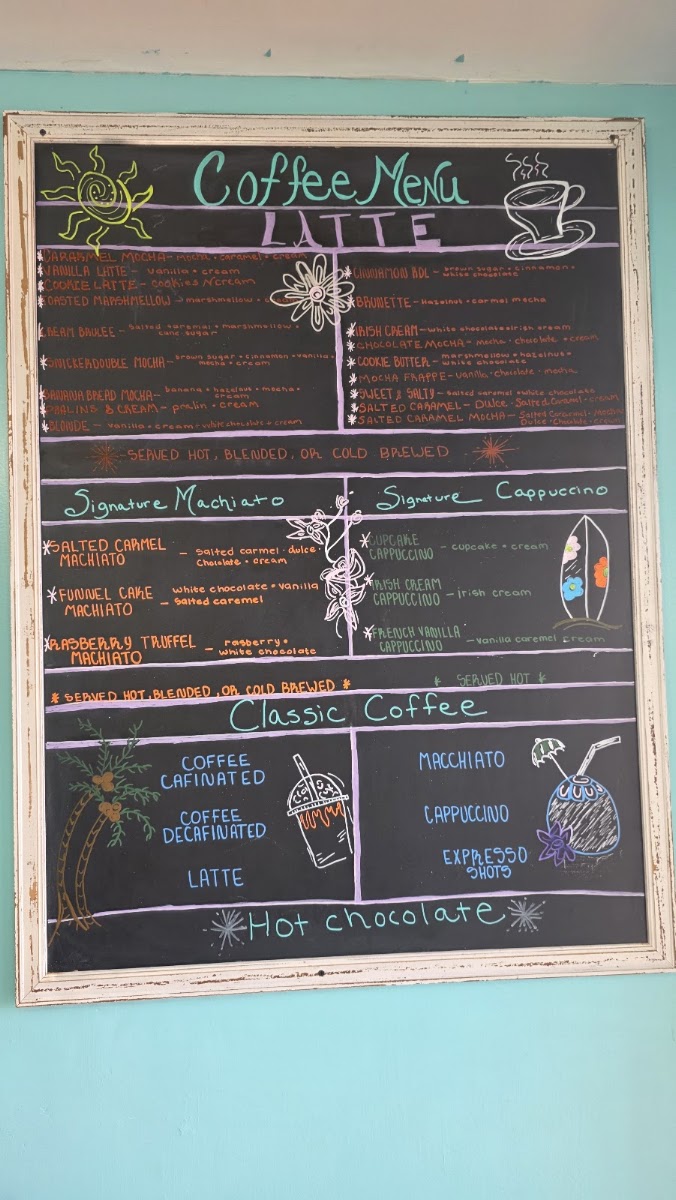 Coffee Menu
LATTE
*CARARMEL MOCHA - mocha • caramel • cream
*VANILLA LATTE - vanilla • cream
*COOKIE LATTE - cookies N cream
*TOASTED MARSHMELLOW - marshmellow •
*CREAM BRULEE - salted caramel • marshmellow •
cane sugar
*SNICKERDOUBLE MOCHA - brown sugar • cinnamon • vanilla •
mocha • cream
*BANANA BREAD MOCHA - banana • hazelnut • mocha •
cream
*PRALINS & CREAM - pralin • cream
*BLONDE - vanilla • cream • white chocolate • cream
*CINNAMON ROL - brown sugar • cinnamon •
white chocolate
*BRUNETTE - hazelnut • carmel mocha
*IRISH CREAM - white chocolate • irish cream
*CHOCOLATE MOCHA - mocha • chocolate • cream
*COOKIE BUTTER - marshmellow • hazelnut •
white chocolate
*MOCHA FRAPPE - vanilla • chocolate • mocha
*SWEET & SALTY - salted caramel • white chocolate
*SALTED CARAMEL - Dulce • Salted Caramel • cream
*SALTED CARAMEL MOCHA - Salted Caramel • Mocha
Dulce • Chocolate • cream
SERVED HOT, BLENDED, OR COLD BREWED
Signature Machiato
*SALTED CARMEL
MACHIATO - salted carmel • dulce •
chocolate • cream
*FUNNEL CAKE
MACHIATO - white chocolate • vanilla
salted caremel
*RASBERRY TRUFFEL
MACHIATO - rasberry •
white chocolate
* SERVED HOT, BLENDED, OR COLD BREWED *
Signature Cappuccino
*CUPCAKE
CAPPUCCINO - cupcake • cream
*IRISH CREAM
CAPPUCCINO - irish cream
*FRENCH VANILLA
CAPPUCCINO - vanilla caremel cream
* SERVED HOT *
Classic Coffee
COFFEE
CAFINATED
COFFEE
DECAFINATED
LATTE
MACCHIATO
CAPPUCCINO
EXPRESSO
SHOTS
Hot chocolate